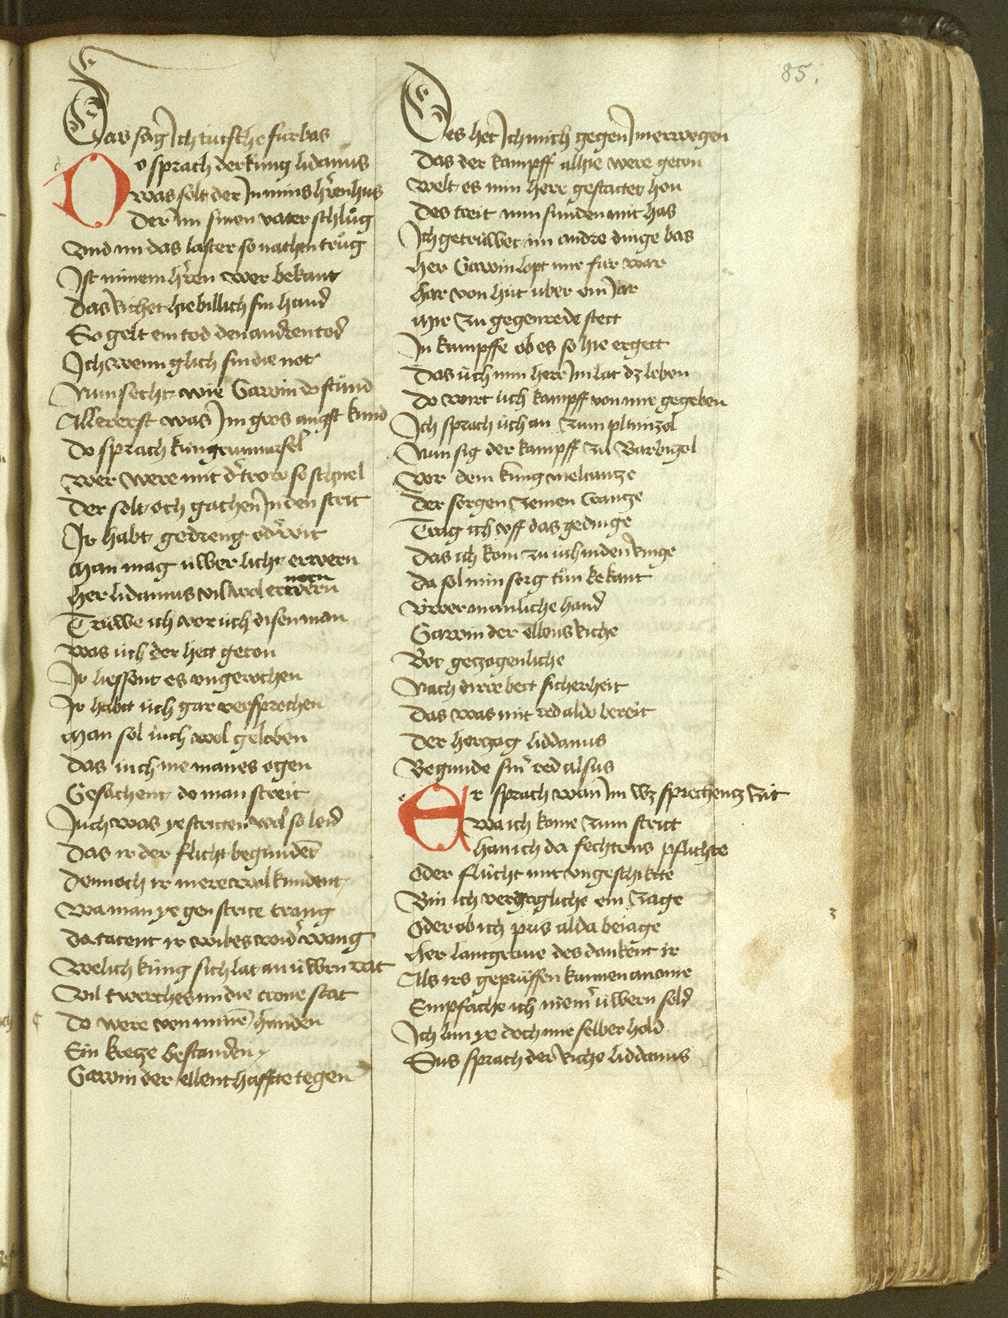 85.
Das sag Ich tutsche furbas
Do sprach der kung lidamus
was solt der In mins h'ren hus
Der Im sinen vater schlůg
Vnd im das laster so nachen trůg
Ist minem h'ren wer bekant
Das richet hie billich sin hand
So gelt ein tod den andren tod
Ich wenn glich sin die not
Nun secht wie Gawin do stůnd
Allererst was Im gros angst kund
Do sprach kingrimursel
wer were mit d' trow so schnel
Der solt och gachen In den strit
Ir habt gedreng od' wit
Man mag uwer licht erwern
Her lidamus vil wol ernern
Truwe ich vor uch disen man
was uch der hett geton
Ir liessent es vngerochen
Ir habt uch gar versprochen
Man sol uch wol geloben
Das iuch nie manes ogen
Gesachent do man streit
Iuch was ye stritten wol so leid
Das ir der flucht begundet
Dennoch ir mere wol kundent
Wa man ye gen strite trang
Da tatent ir wibes wid'wang
Welich kung sich lat an uwren rat
Vil twerches im die crone stat
Do were von minen handen
Ein kreize bestanden
Gawin der ellenthaffte tegen
Des het Ich mich gegen Im erwegen
Das der kampff alhie were geton
Welt es min herr gestattet hon
Des treit min sunden mit has
Ich getruwet im andre dinge bas
Her Gawin lopt mir fur war
Har von hut uber ein Jar
Mir zu gegenrede stett
In kampffe ob es so hie ergett
Das uch min herr Im lat dz leben
Do wirt uch kampff von mir gegeben
Ich sprach uch an zum plimizol
Nun sig der kampff zu Barbigol
Vor dem kung meliantze
Der sorgen zemen krantze
Trag ich vff das gedinge
Das ich kom zu uch in den ringe
Da sol min sorg tun bekant
Vwer manliche hand
Gawin der ellens riche
Bot gezogenliche
Nach dirre bett sicherheit
Das was mit red aldo bereit
Der hertzog liddamus
Begunde sin' red alsus
Er sprach wan Im wz sprechentz zit
Wa ich kome zum stritt
Han ich da fechtens pflichte
Oder flucht mit vngeschichte
Bin ich verzagliche ein zage
Oder ob ich pris alda beiage
Her lantgrave des dankent ir
Als irs gepruffen kunnen an mir
Empfache ich niem' uwern sold
Ich bin ye doch mir selber hold
Sus sprach der riche liddamus